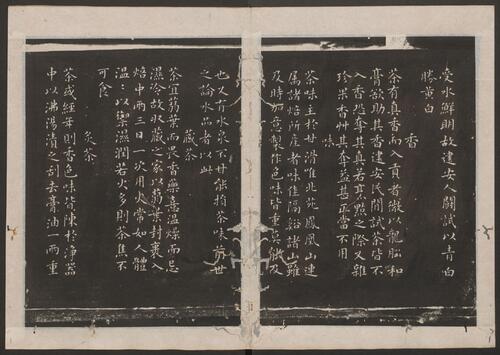 受水鮮明故建安人鬬試以青白
勝黃白
香
茶有真香而入貢者微以龍腦和
膏欲助其香建安民間試茶皆不
入香恐奪其真若烹點之際又雜
珍果香艸其奪益甚正當不用
味
茶味主於甘滑惟北苑鳳凰山連
屬諸焙所產者味佳隔谿諸山雖
及時加意製作色味皆重莫能及
也又有水泉不甘能損茶味前世
之論水品者以此
藏茶
茶宜蒻葉而畏香藥喜溫燥而忌
濕冷故收藏之家以蒻葉封裹入
焙中兩三日一次用火常如人體
溫溫以禦濕潤若火多則茶焦不
可食
炙茶
茶或經年則香色味皆陳於淨器
中以沸湯漬之刮去膏油一兩重